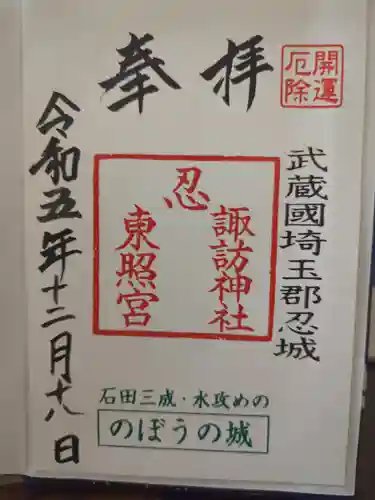 奉拝
開運
厄除
武蔵國埼玉郡忍城
忍
諏訪神社
東照宮
令和五年十二月十八日
石田三成・水攻めの
のぼうの城